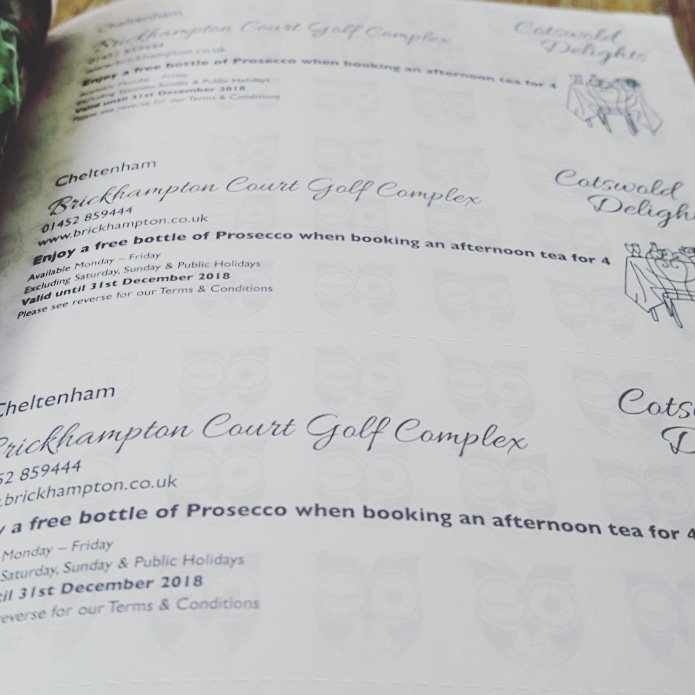 Cheltenham
Brickhampton Court Golf Complex
01452 859444
www.brickhampton.co.uk
Enjoy a free bottle of Prosecco when booking an afternoon tea for 4
Available Monday – Friday
Excluding Saturday, Sunday & Public Holidays
Valid until 31st December 2018
Please see reverse for our Terms & Conditions
Cotswold
Delights
Cheltenham
Brickhampton Court Golf Complex
01452 859444
www.brickhampton.co.uk
Enjoy a free bottle of Prosecco when booking an afternoon tea for 4
Available Monday – Friday
Excluding Saturday, Sunday & Public Holidays
Valid until 31st December 2018
Please see reverse for our Terms & Conditions
Cotswold
Deligh
Cheltenham
Brickhampton Court Golf Complex
52 859444
.brickhampton.co.uk
y a free bottle of Prosecco when booking an afternoon tea for 4
Monday – Friday
Saturday, Sunday & Public Holidays
til 31st December 2018
reverse for our Terms & Conditions
Cots
D